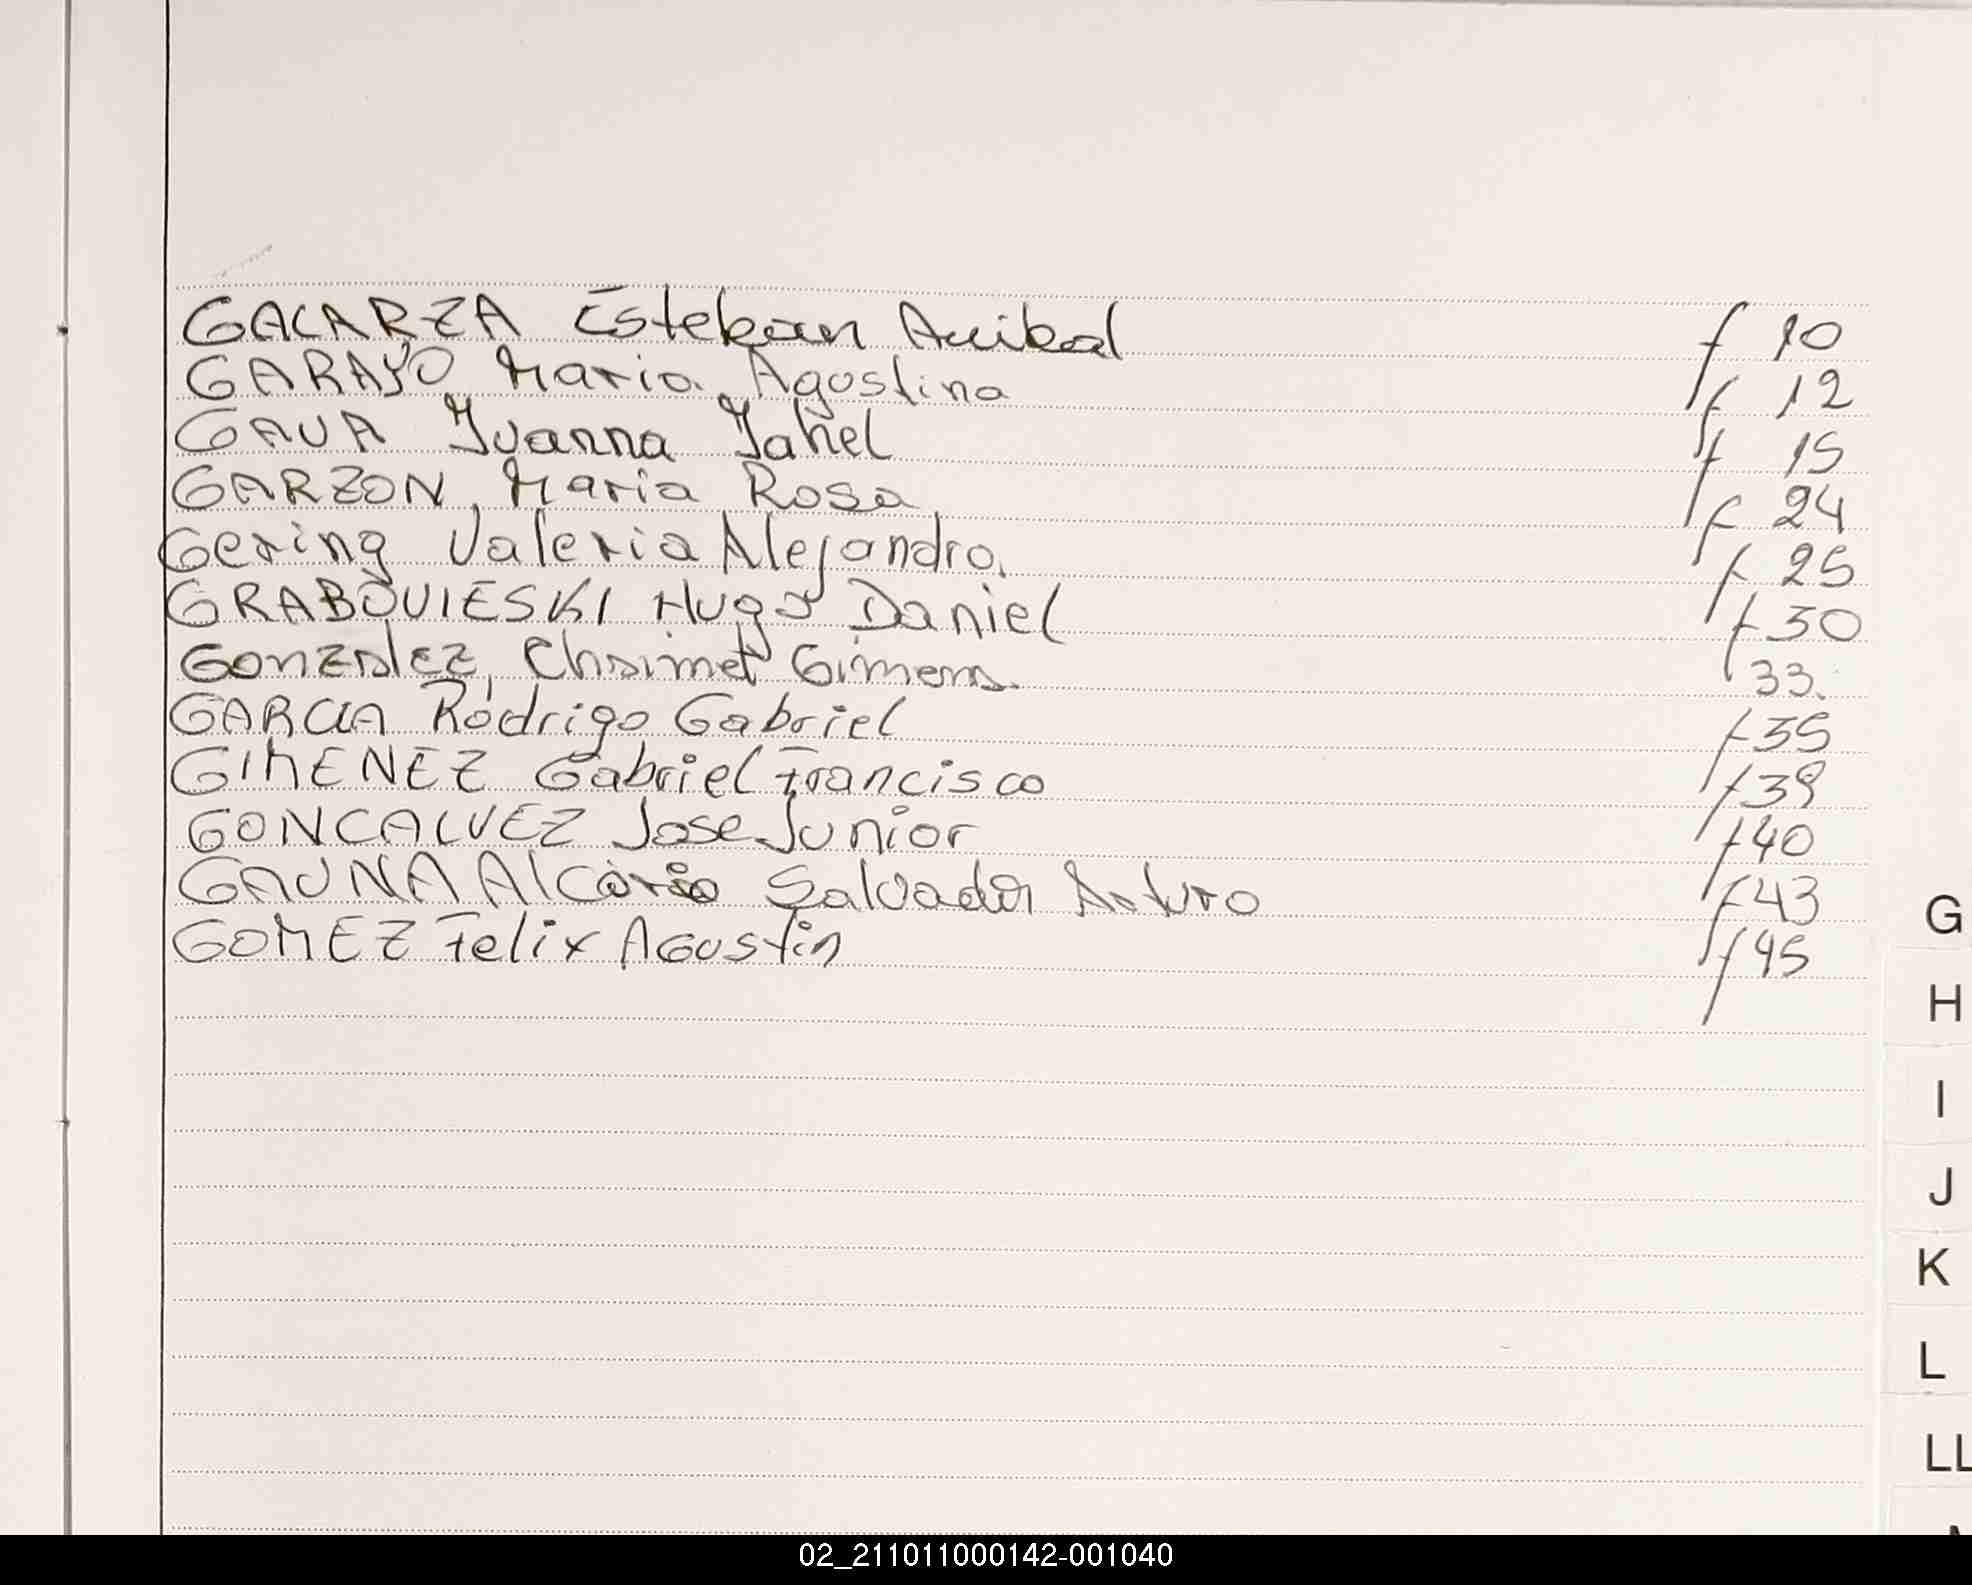 GALARZA Esteban Anibal f 10
GARAYO Maria Agostina f 12
GAUA Ivanna Jahel f 15
GARZON, Maria Rosa f 24
Gering Valeria Alejandra. f 25
GRABOVIESKI Hugo Daniel f 30
Gonzalez, Chaimet Gimena. f 33.
GARCIA Rodrigo Gabriel f 35
GIMENEZ Gabriel Francisco f 39
GONCALVEZ Jose Junior f 40
GAUNA Alcario Salvador Arturo f 43
GOMEZ Felix AGustin f 45
G
H
I
J
K
L
LL
02_211011000142-001040